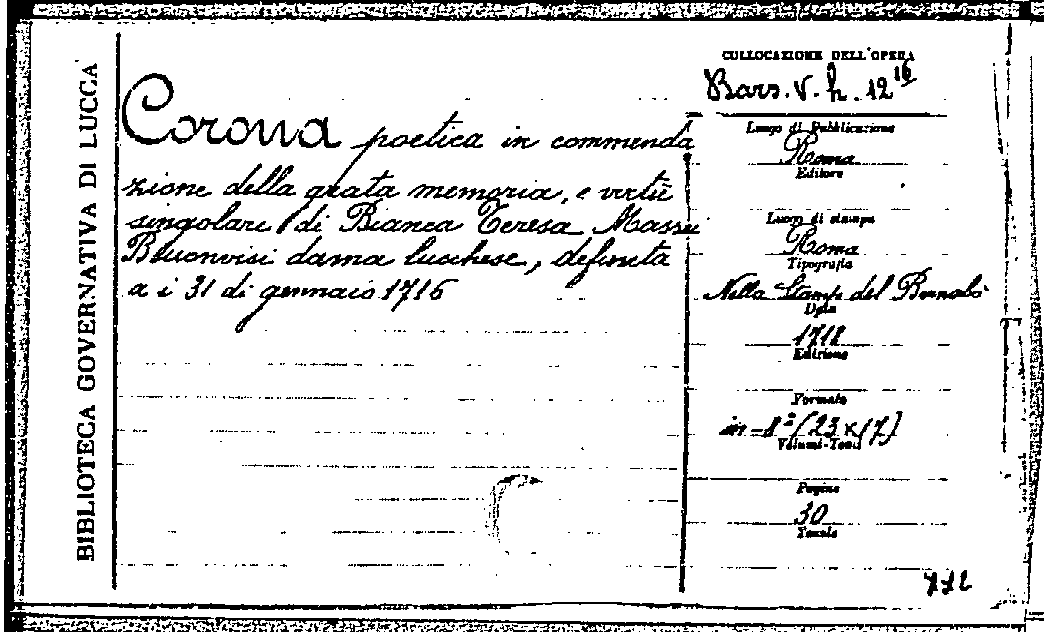 BIBLIOTECA GOVERNATIVA DI LUCCA
Corona poetica in commenda
zione della grata memoria, e virtù
singolari di Bianca Teresa Massei
Buonvisi dama lucchese, defunta
a i 31 di gennaio 1716
COLLOCAZIONE DELL'OPERA
Bars. V. h. 12 16
Luogo di Pubblicazione
Roma
Editore
Luogo di stampa
Roma
Tipografia
Nella Stamp. del Bernabò
Data
1718
Edizione
Formato
in-8º (23x17)
Volumi-Tomi
Pagine
30
Tavole